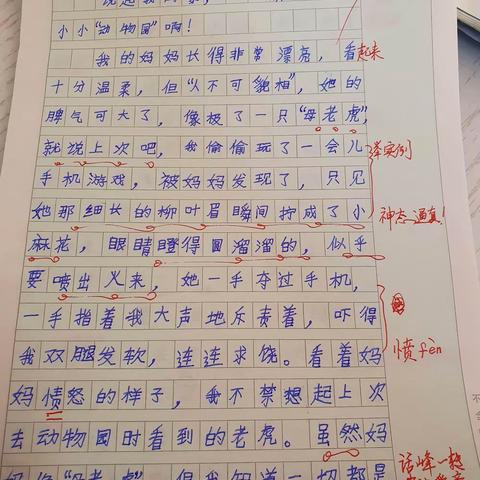 说起我的家，
小小“动物园”啊！
我的妈妈长得非常漂亮，看起来
十分温柔，但“人不可貌相”，她的
脾气可大了，像极了一只“母老虎”，
就说上次吧，我偷偷玩了一会儿
举实例
手机游戏，被妈妈发现了，只见
她那细长的柳叶眉瞬间拧成了小
神态逼真！
麻花，眼睛瞪得圆溜溜的，似乎
要喷出火来，她一手夺过手机，
一手指着我大声地斥责着，吓得
我双腿发软，连连求饶。看着妈
愤fèn
妈愤怒的样子，我不禁想起上次
去动物园时看到的老虎。虽然妈
话峰一转
妈像“母老虎”，但我知道一切都是